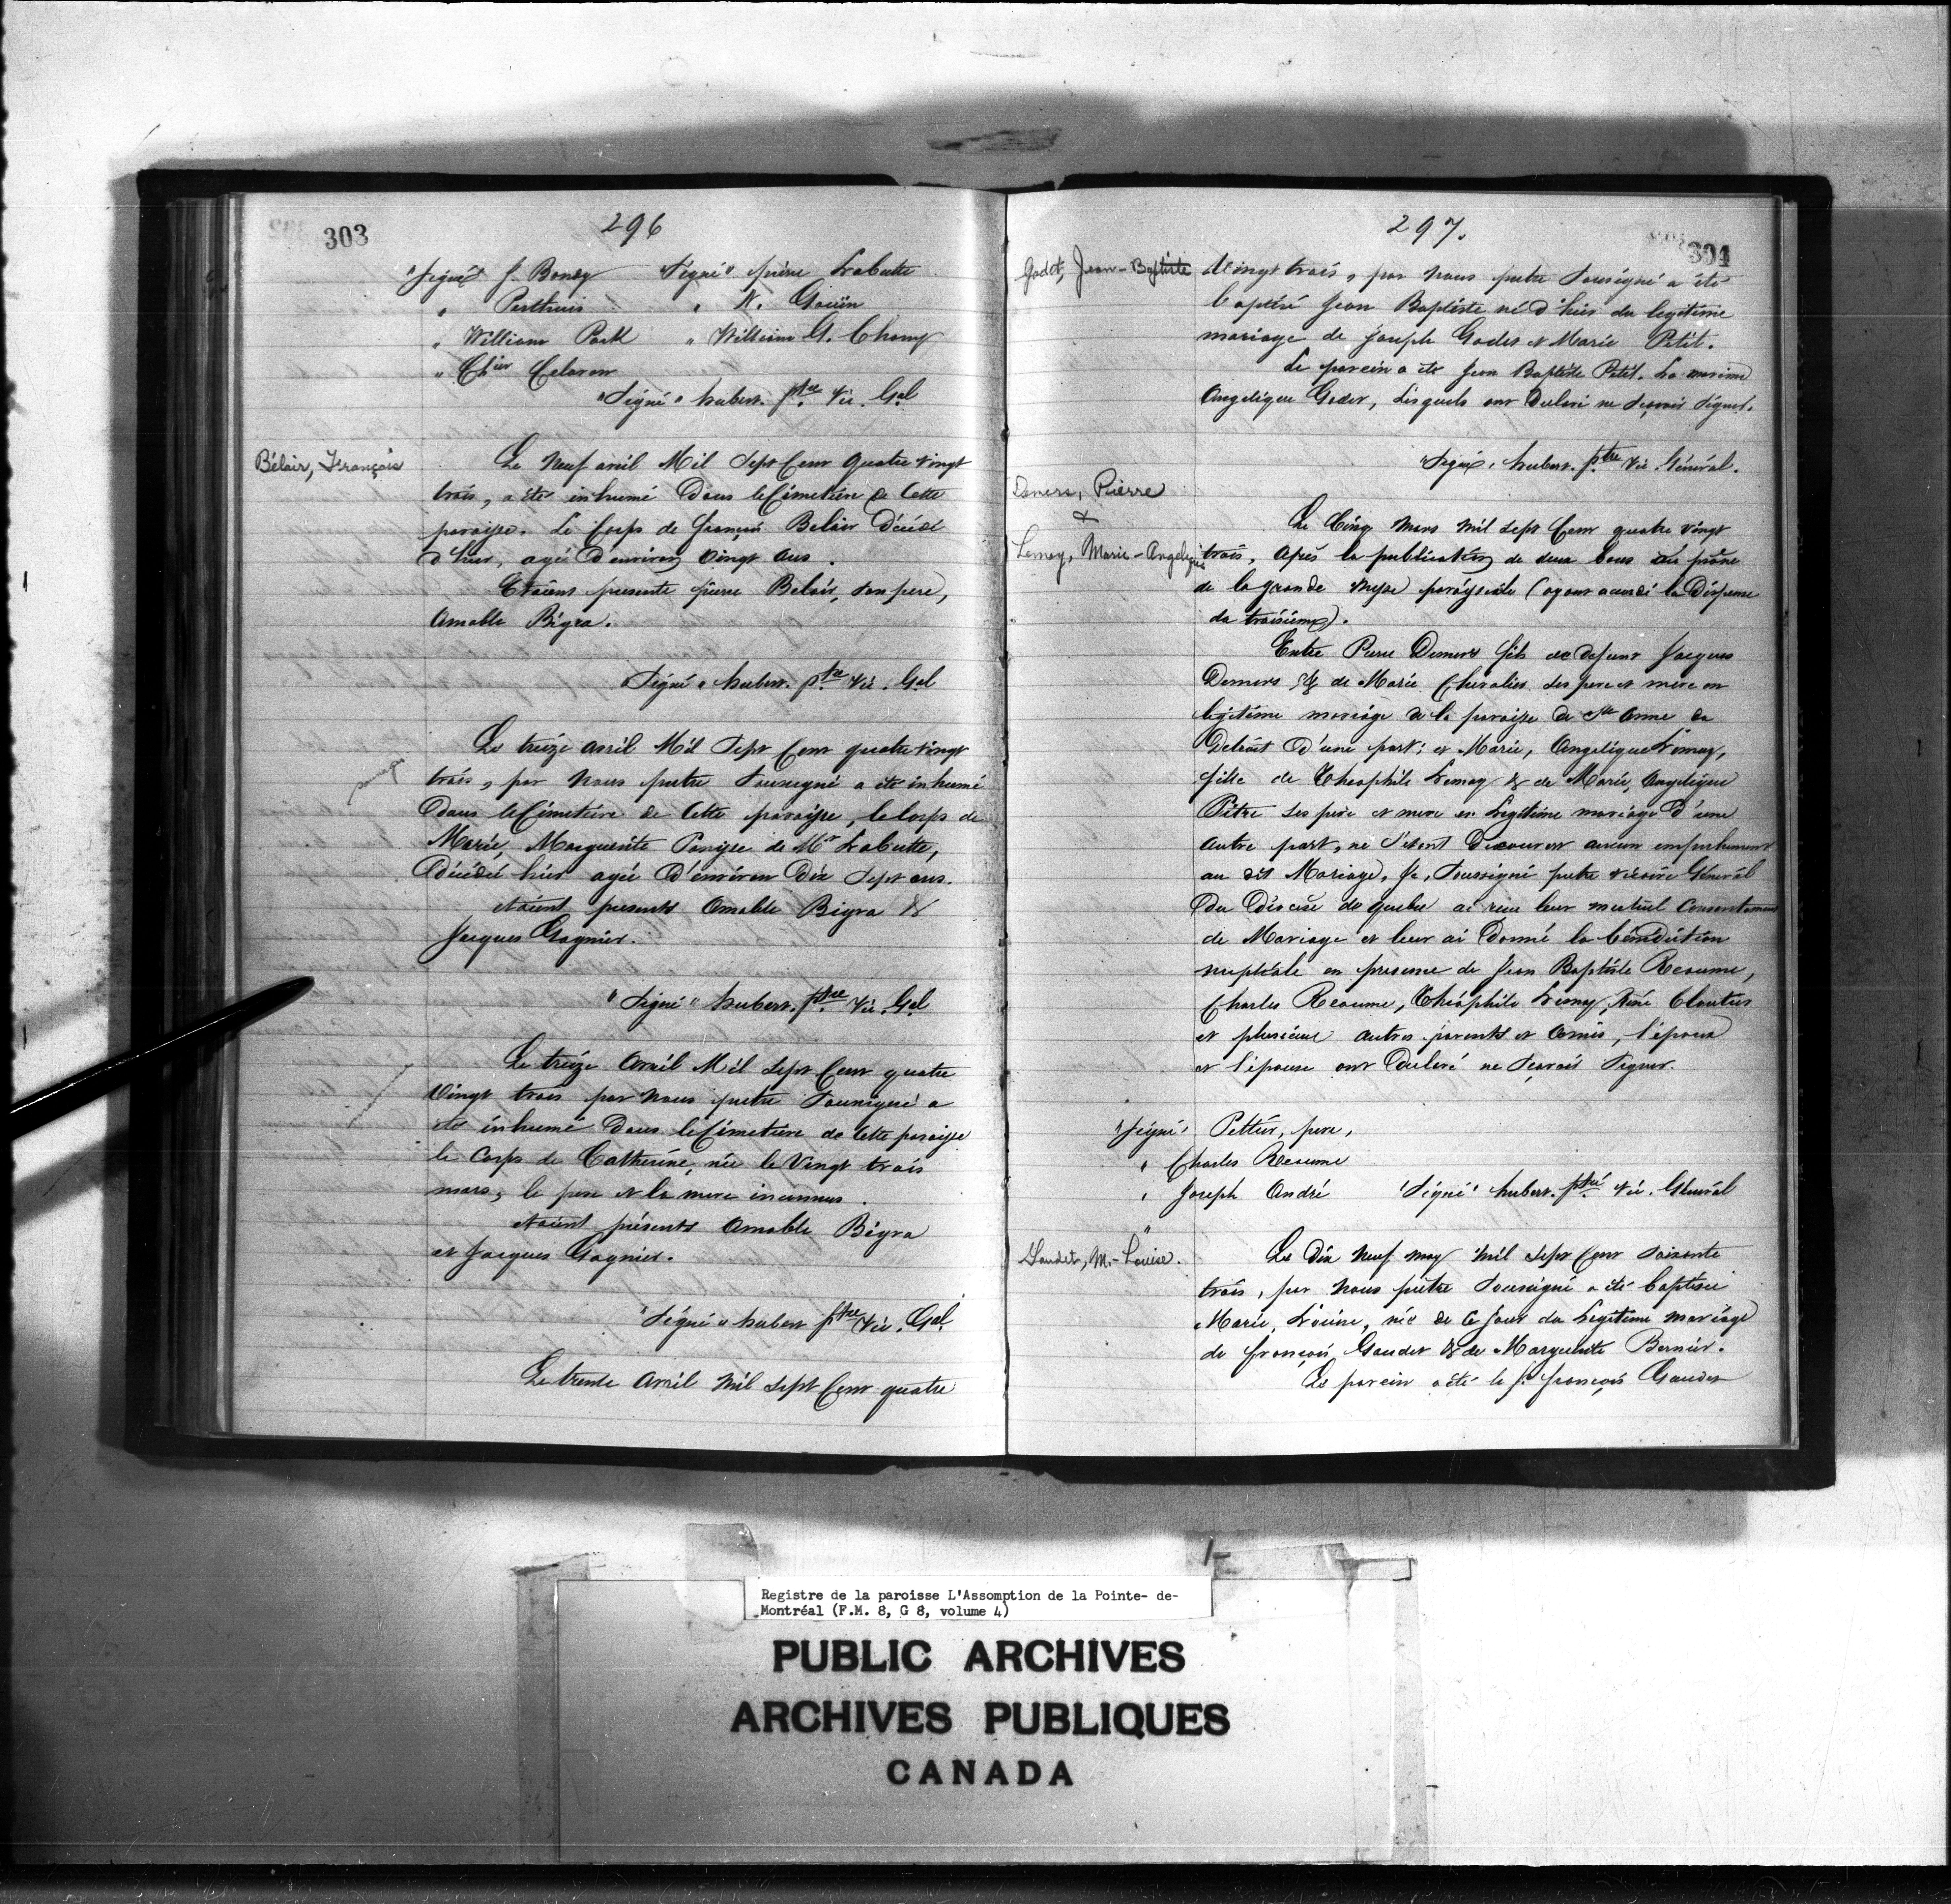 303
296
"Signé" J. Bondy "Signé" pierre Labutte
" Perthuis " N. Gouin
" William Park " William G. Champ
" Chier Celoron
"Signé" hubert. ptre Vic. Gal
Bélair, François
Le Neuf avril Mil Sept Cent Quatre vingt
trois, a été inhumé Dans le Cimetière de Cette
paroisse. Le Corps de françois Belair Décédé
d'hier, agé D'environ Vingt Ans.
Etoient presents pierre Belair, son pere,
Amable Bigra.
"Signé" hubert. ptre Vic. Gal
Le treize avril Mil Sept Cent quatre vingt
trois, par Nous pretre Soussigné a été inhumé
Dans le Cimetière de Cette paroisse, le Corps de
Marie, Marguerite Panise de Mr Labutte,
Décédée hier agée D'environ Dix Sept ans.
etoient presents Amable Bigra &
Jacques Gagnier.
"Signé" hubert. ptre Vic. Gal
Le treize Avril Mil Sept Cent quatre
Vingt trois par Nous pretre Soussigné a
été inhumé Dans le Cimetière de Cette paroisse
le Corps de Catherine, née le Vingt trois
mars, le pere et la mere inconnus.
etoient présents Amable Bigra
et Jacques Gagnier.
"Signé" hubert ptre Vic. Gal.
Le trente Avril Mil Sept Cent quatre
297.
304
Godet, Jean-Baptiste
Vingt trois, par Nous pretre Soussigné a été
baptisé Jean Baptiste né d'hier du legitime
mariage de Joseph Godet et Marie Petit.
Le parein a été Jean Baptiste Petit. La mareine
Angelique Godet, Lesquels ont Declaré ne Sçavoir Signer.
"Signé, hubert. ptre Vic. Général.
Demers, Pierre
&
Lemay, Marie-Angelique
Le Cinq Mars Mil Sept Cent quatre Vingt
trois, Après la publication de deux bans au prône
de la grande Messe paroissiale (ayant accordé la Dispense
du troisième).
Entre Pierre Demers fils de defunt Jacques
Demers & de Marie Chevalier ses pere et mere en
legitime mariage de la paroisse de Ste Anne du
Detroit D'une part; et Marie, Angelique Lemay,
fille de Théophile Lemay & de Marie, Angelique
Pitre ses père et mere en Legitime mariage D'une
autre part, ne S'étant Découvert aucun empechement
au dit Mariage, Je, Soussigné pretre vicaire Général
Du Diocèse de quebec ai reçu leur mutuel Consentement
de Mariage et leur ai Donné la bénédiction
nuptiale en presence de Jean Baptiste Reaume,
Charles Reaume, Théophile Lemay, René Cloutier
et plusieurs autres parents et Amis, l'époux
et l'épouse ont Declaré ne Sçavoir Signer.
"Signé" Pettier, pere,
" Charles Reaume
" Joseph André "Signé" hubert. ptre Vic. Général
Gaudet, M.-Louise.
Le Dix Neuf may Mil Sept Cent Soixante
trois, par Nous prêtre Soussigné a été baptisée
Marie, Louise, née de Ce Jour du Legitime mariage
de françois Gaudet & de Marguerite Bernier.
Le parein a été le S. françois Gaudet
Registre de la paroisse L'Assomption de la Pointe- de-
Montréal (F.M. 8, G 8, volume 4)
PUBLIC ARCHIVES
ARCHIVES PUBLIQUES
CANADA